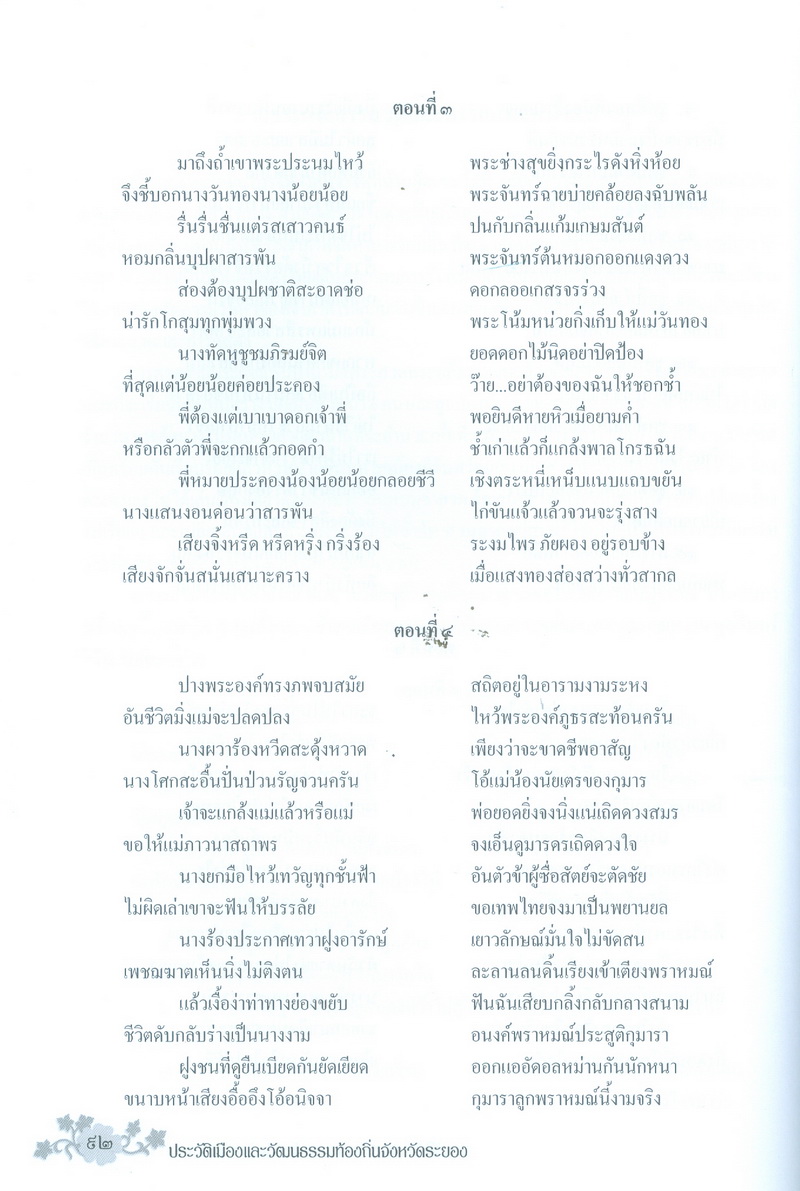 ตอนที่ ๓
มาถึงถ้ำเขาพระประนมไหว้ พระช่างสุขยิ่งกระไรดังหิ่งห้อย
จึงชี้บอกนางวันทองนางน้อยน้อย พระจันทร์ฉายบ่ายคล้อยลงฉับพลัน
รื่นรื่นชื่นแต่รสเสาวคนธ์ ปนกับกลิ่นแก้มเกษมสันต์
หอมกลิ่นบุปผาสารพัน พระจันทร์ต้นหมอกออกแดงดวง
ส่องต้องบุปผชาติสะอาดช่อ ดอกลออเกสรจรร่วง
น่ารักโกสุมทุกพุ่มพวง พระโน้มหน่วยกิ่งเก็บให้แม่วันทอง
นางทัดหูชูชมภิรมย์จิต ยอดดอกไม้นิดอย่าปิดป้อง
ที่สุดแต่น้อยน้อยค่อยประคอง ว๊าย...อย่าต้องของฉันให้ชอกช้ำ
พี่ต้องแต่เบาเบาดอกเจ้าพี่ พอยินดีหายหิวเมื่อยามค่ำ
หรือกลัวตัวพี่จะกกแล้วกอดกำ ช้ำเก่าแล้วก็แกล้งพาลโกรธฉัน
พี่หมายประคองน้องน้อยน้อยกลอยชีวี เชิงตระหนี่เหน็บแนบแถบขยัน
นางแสนงอนด่อนว่าสารพัน ไก่ขันแจ้วแล้วจวนจะรุ่งสาง
เสียงจิ้งหรีด หรีดหรุ่ง กริ่งร้อง ระงมไพร ภัยผอง อยู่รอบข้าง
เสียงจักจั่นสนั่นเสนาะคราง เมื่อแสงทองส่องสว่างทั่วสากล
ตอนที่ ๔
ปางพระองค์ทรงภพจบสมัย สถิตอยู่ในอารามงามระหง
อันชีวิตมิ่งแม่จะปลดปลง ไหว้พระองค์ภูธรสะท้อนครัน
นางผวาร้องหวีดสะดุ้งหวาด เพียงว่าจะขาดชีพอาสัญ
นางโศกสะอื้นปั่นป่วนรัญจวนครัน โอ้แม่น้องนัยเตรของกุมาร
เจ้าจะแกล้งแม่แล้วหรือแม่ พ่อยอดยิ่งจงนิ่งแน่เถิดดวงสมร
ขอให้แม่ภาวนาสถาพร จงเอ็นดูมารดรเถิดดวงใจ
นางยกมือไหว้เทวัญทุกชั้นฟ้า อันตัวข้าผู้ซื่อสัตย์จะตัดชัย
ไม่ผิดเล่าเขาจะฟันให้บรรลัย ขอเทพไทยจงมาเป็นพยานยล
นางร้องประกาศเทวาฝูงอารักษ์ เยาวลักษณ์มั่นใจไม่ขัดสน
เพชฌฆาตเห็นนิ่งไม่ติงตน ละลานลนดิ้นเรียงเข้าเตียงพราหมณ์
แล้วเงื้อง่าท่าทางย่องขยับ ฟันฉันเสียบกลิ้งกลับกลางสนาม
ชีวิตดับกลับร่างเป็นนางงาม อนงค์พราหมณ์ประสูติกุมารา
ฝูงชนที่ดูยืนเบียดกันยัดเยียด ออกแออัดอลหม่านกันนักหนา
ขนาบหน้าเสียงอื้ออึงโอ้อนิจจา กุมาราลูกพราหมณ์นี้งามจริง
๙๒ ประวัติเมืองและวัฒนธรรมท้องถิ่นจังหวัดระยอง